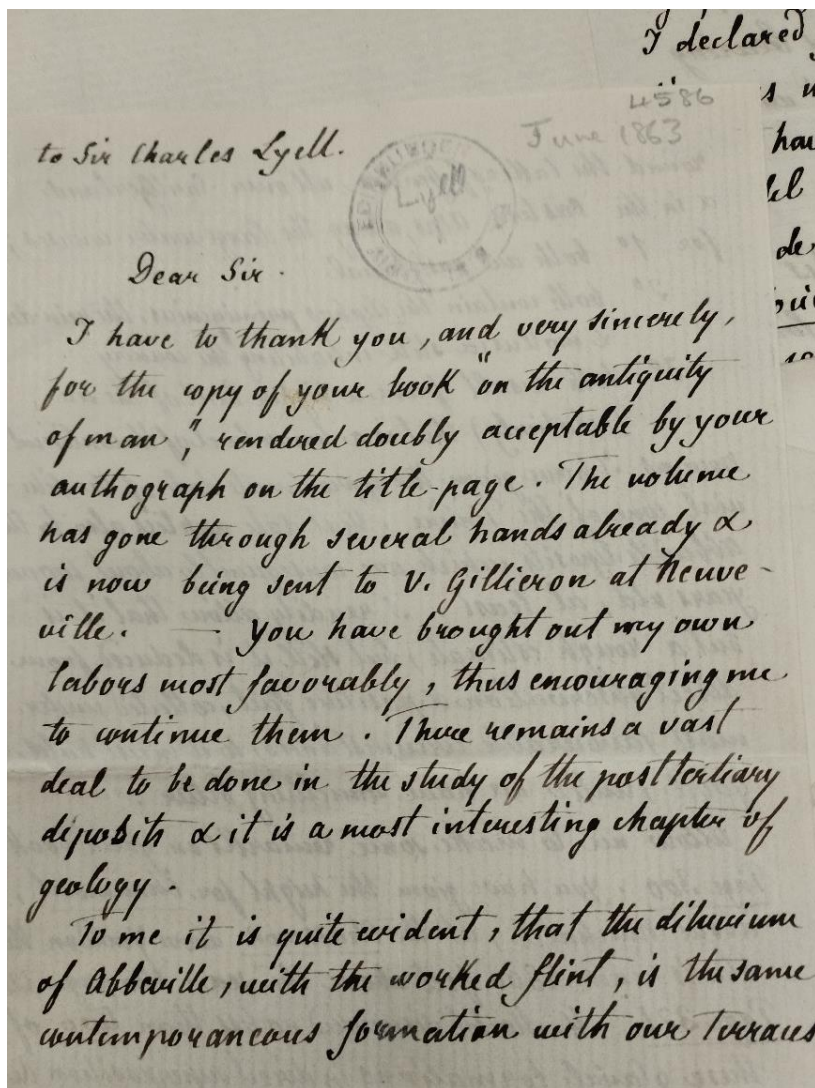 I declared
4586
June 1863
to Sir Charles Lyell.
Lyell
Dear Sir.
I have to thank you, and very sincerely,
for the copy of your book "on the antiquity
of man", rendered doubly acceptable by your
authograph on the title-page. The volume
has gone through several hands already &
is now being sent to V. Gillieron at Neuve-
ville. — You have brought out my own
labors most favorably, thus encouraging me
to continue them. There remains a vast
deal to be done in the study of the posttertiary
deposits & it is a most interesting chapter of
geology.
To me it is quite evident, that the diluvium
of Abbeville, with the worked flint, is the same
contemporaneous formation with our Terraces